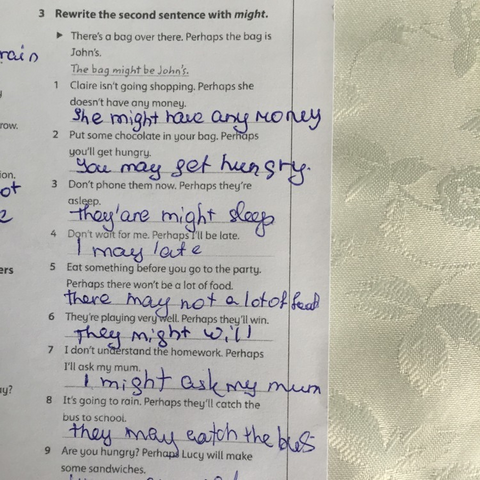 rain
3 Rewrite the second sentence with might.
▶ There's a bag over there. Perhaps the bag is
John's.
The bag might be John's.
1 Claire isn't going shopping. Perhaps she
doesn't have any money.
She might have any money
row.
2 Put some chocolate in your bag. Perhaps
you'll get hungry.
You may get hungry.
ion.
ot
3 Don't phone them now. Perhaps they're
asleep.
they'are might sleep
4 Don't wait for me. Perhaps I'll be late.
I may late
ers
5 Eat something before you go to the party.
Perhaps there won't be a lot of food.
there may not a lot of food
6 They're playing very well. Perhaps they'll win.
They might will
7 I don't understand the homework. Perhaps
I'll ask my mum.
I might ask my mum
ay?
8 It's going to rain. Perhaps they'll catch the
bus to school.
they may catch the bus
9 Are you hungry? Perhaps Lucy will make
some sandwiches.